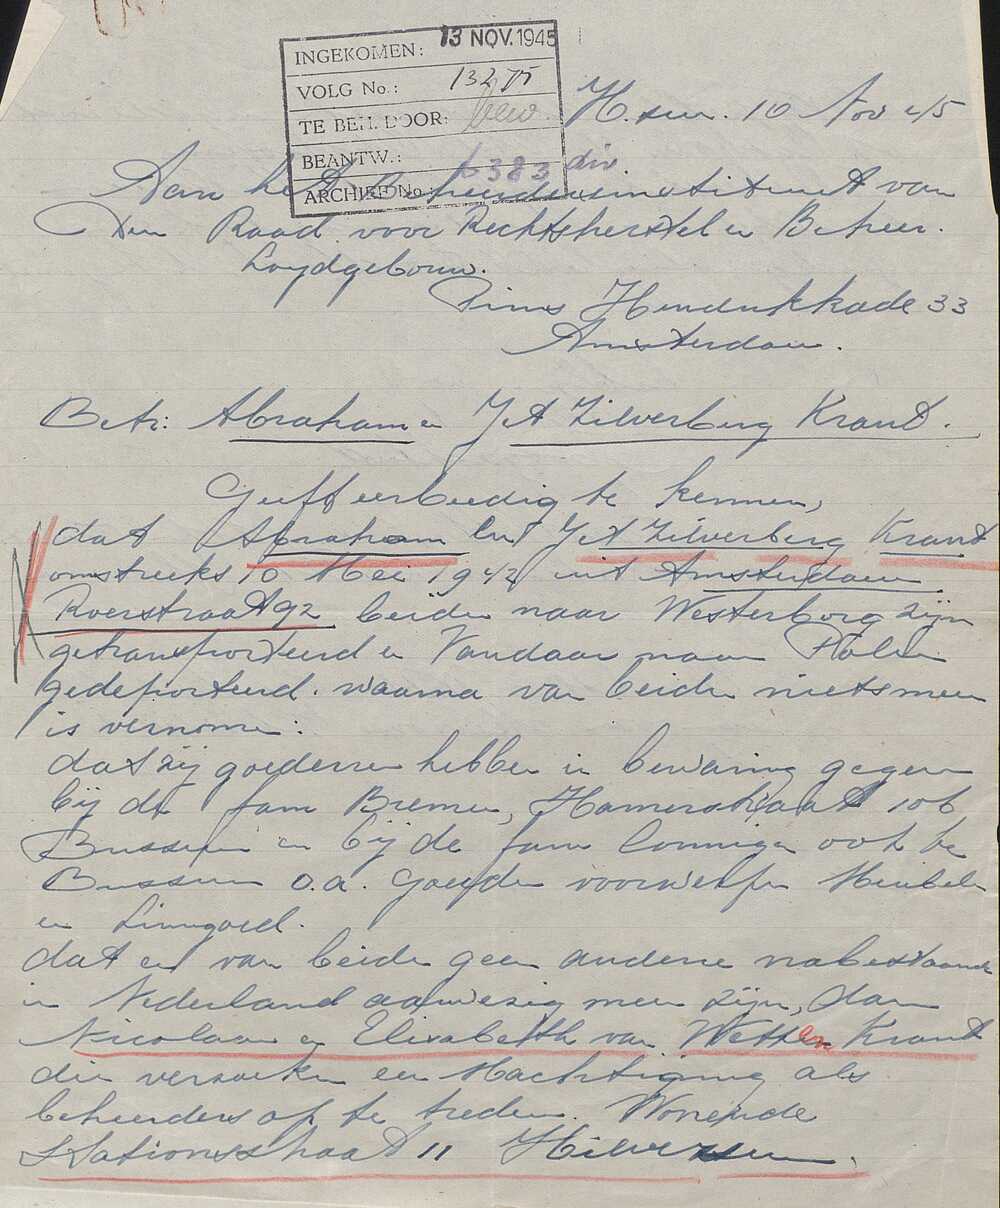 INGEKOMEN: 13 NOV. 1945
VOLG No.: 13275
TE BEH. DOOR:
BEANTW.:
ARCHIEF No.: 6383 div
H.sum. 10 Nov 45
Aan het Beheerdersinstituut van
Den Raad voor Rechtsherstel en Beheer.
Loydgebouw.
Prins Hendrikkade 33
Amsterdam.
Betr: Abraham en Jet Zilverberg Krant.
Geeft eerbiedig te kennen,
dat Abraham en Jet Zilverberg Krant
omstreeks 10 Mei 1942 uit Amsterdam
Roerstraat 92 beiden naar Westerborg zijn
getransporteerd en Vandaar naar Polen
gedeporteerd. waarna van beiden niets meer
is vernomen:
dat zij goederen hebben in bewaring gegeven
bij de fam Bremer, Hamerstraat 106
Bussum en bij de fam ook te
Bussum o.a. Gouden voorwerpen Meubelen
en Linngoed.
dat er van beiden geen andere nabestaande
in Nederland aanwezig meer zijn, dan
Nicolaas en Elisabetth van Wetten Krant
die verzoeken een Machtiging als
beheerders op te treden. Wonende
Stationsstraat 11 Hilversum.